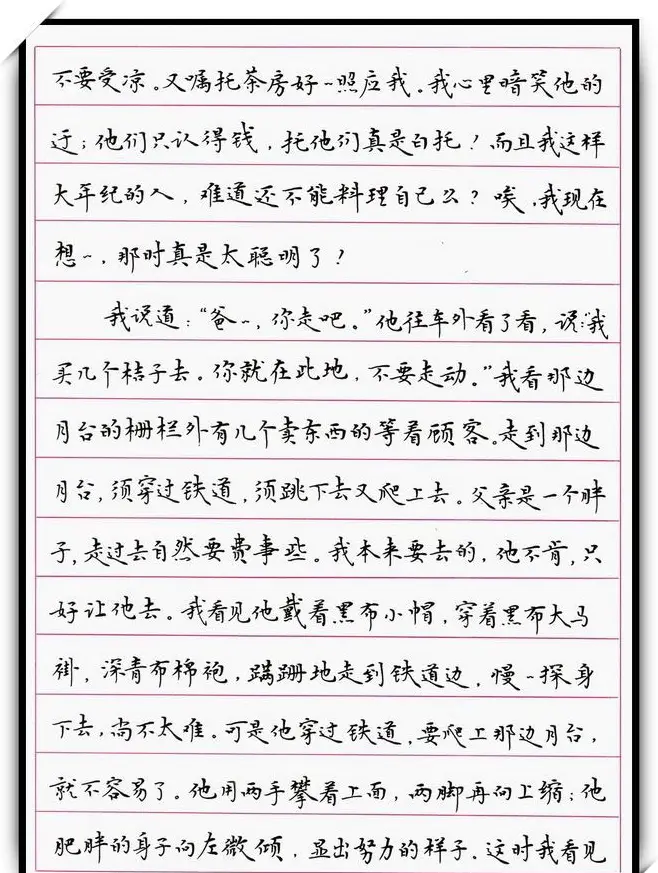 不要受凉。又嘱托茶房好~照应我。我心里暗笑他的
迂；他们只认得钱，托他们真是白托！而且我这样
大年纪的人，难道还不能料理自己么？唉，我现在
想~，那时真是太聪明了！
我说道：“爸~，你走吧。”他往车外看了看，说：“我
买几个桔子去。你就在此地，不要走动。”我看那边
月台的栅栏外有几个卖东西的等着顾客。走到那边
月台，须穿过铁道，须跳下去又爬上去。父亲是一个胖
子，走过去自然要费事些。我本来要去的，他不肯，只
好让他去。我看见他戴着黑布小帽，穿着黑布大马
褂，深青布棉袍，蹒跚地走到铁道边，慢~探身
下去，尚不太难。可是他穿过铁道，要爬上那边月台，
就不容易了。他用两手攀着上面，两脚再向上缩；他
肥胖的身子向左微倾，显出努力的样子。这时我看见